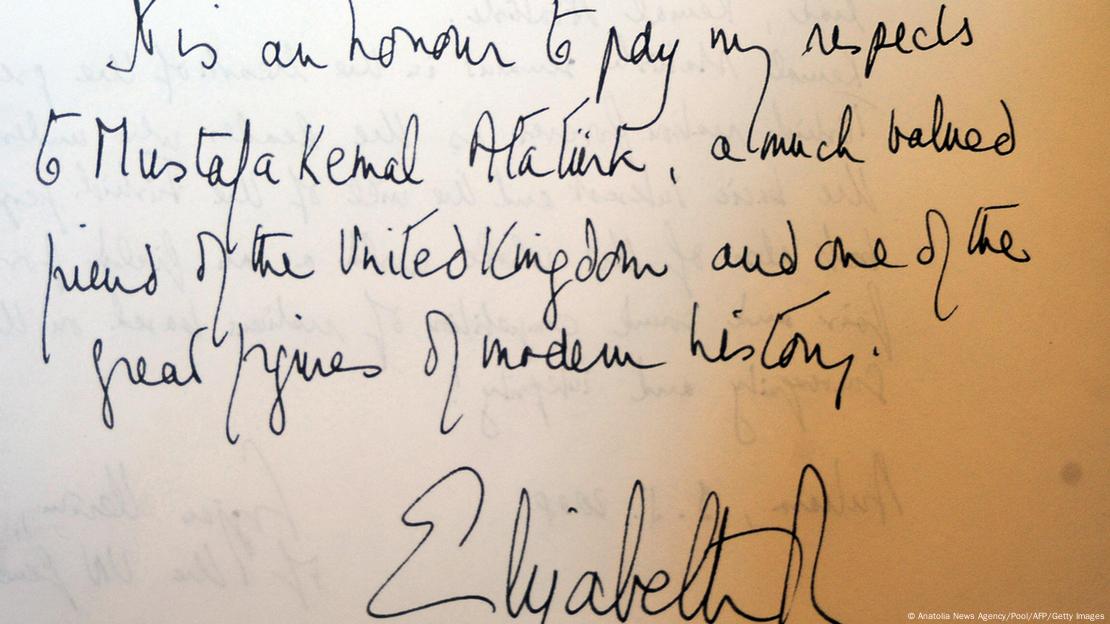 It is an honour to pay my respects
to Mustafa Kemal Atatürk, a much valued
friend of the United Kingdom and one of the
great figures of modern history.
Elizabeth R
© Anatolia News Agency/Pool/AFP/Getty Images